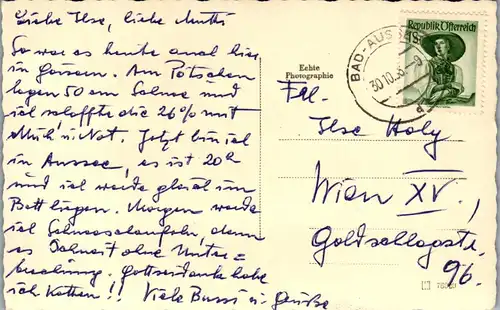 Liebe Ilse, liebe Mutti
So war es heute auch hier
in Goisern. Am Pötschen
liegen 50 cm Schnee und
ich schaffte die 26% mit
Müh u. Not. Jetzt bin ich
in Aussee, es ist 20h
und ich werde gleich im
Bett liegen. Morgen werde
ich Schneeschaufeln, denn
es schneit ohne Unter=
brechung. Gottseidank habe
ich Ketten!! Viele Bussi u. Grüße
Echte
Photographie
BAD-AUSSEE
30.10.
Republik Österreich
1S
Frl.
Ilse Holy
Wien XV.,
Goldschlagstr.
96.